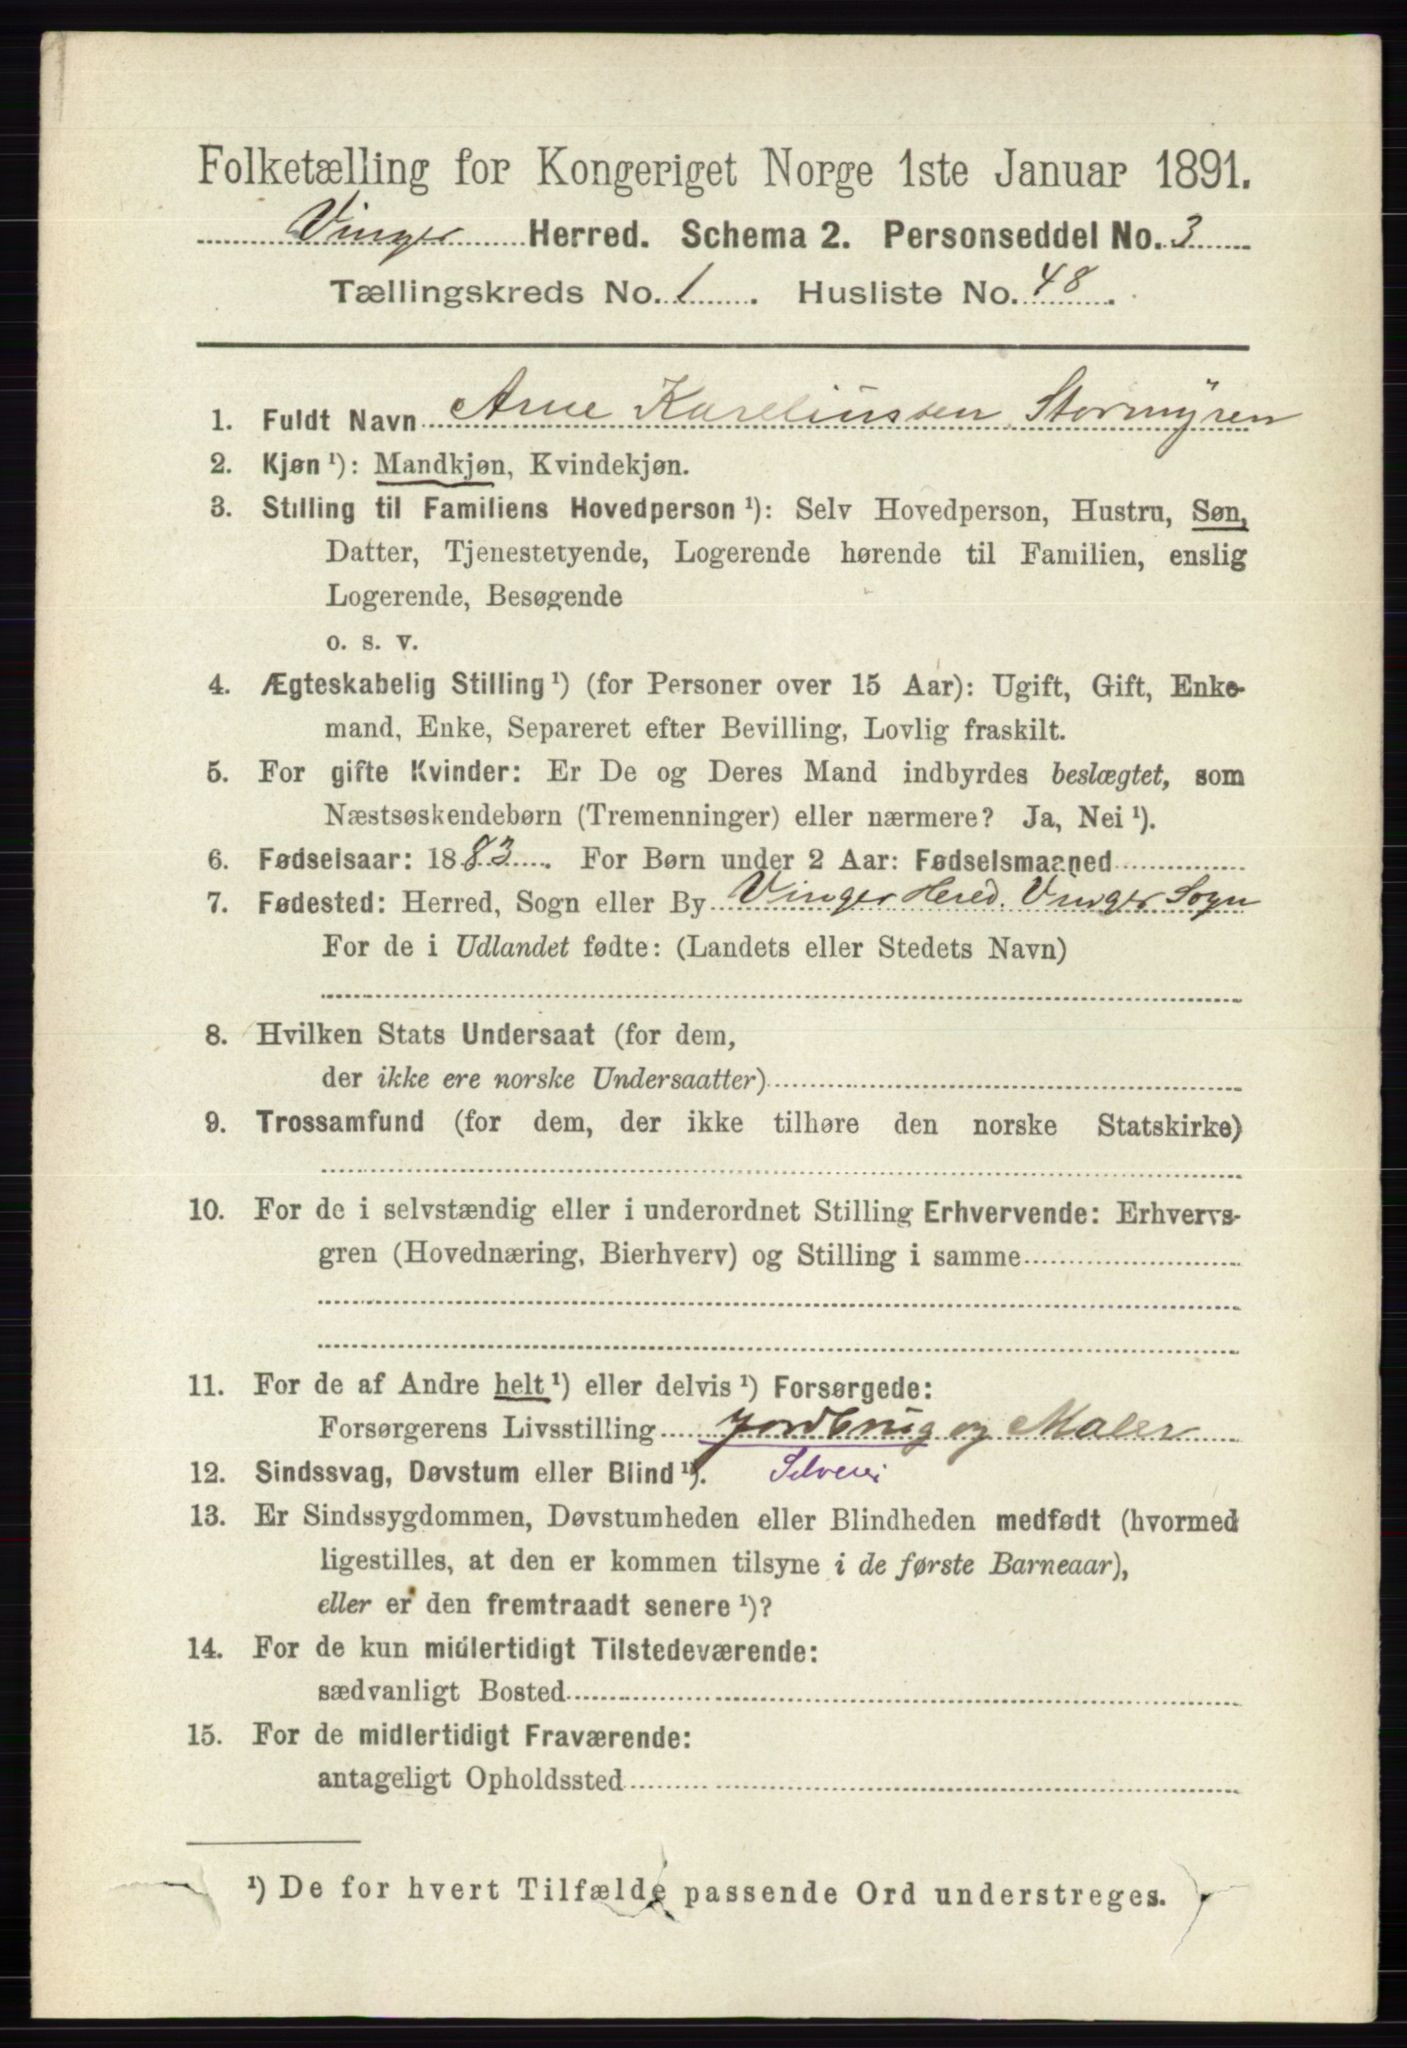 Folketælling for Kongeriget Norge 1ste Januar 1891.
Vinger Herred. Schema 2. Personseddel No. 3
Tællingskreds No. 1. Husliste No. 48.
1. Fuldt Navn Arne Kareliussen Stormyren
2. Kjøn ¹): Mandkjøn, Kvindekjøn.
3. Stilling til Familiens Hovedperson ¹): Selv Hovedperson, Hustru, Søn,
Datter, Tjenestetyende, Logerende hørende til Familien, enslig
Logerende, Besøgende
o. s. v.
4. Ægteskabelig Stilling ¹) (for Personer over 15 Aar): Ugift, Gift, Enke-
mand, Enke, Separeret efter Bevilling, Lovlig fraskilt.
5. For gifte Kvinder: Er De og Deres Mand indbyrdes beslægtet, som
Næstsøskendebørn (Tremenninger) eller nærmere? Ja, Nei ¹).
6. Fødselsaar: 1883. For Børn under 2 Aar: Fødselsmaaned
7. Fødested: Herred, Sogn eller By Vinger Hered. Vinger Sogn
For de i Udlandet fødte: (Landets eller Stedets Navn)
8. Hvilken Stats Undersaat (for dem,
der ikke ere norske Undersaatter)
9. Trossamfund (for dem, der ikke tilhøre den norske Statskirke)
10. For de i selvstændig eller i underordnet Stilling Erhvervende: Erhvervs-
gren (Hovednæring, Bierhverv) og Stilling i samme
11. For de af Andre helt ¹) eller delvis ¹) Forsørgede:
Forsørgerens Livsstilling Jordbrug og Maler
12. Sindssvag, Døvstum eller Blind ¹). Selveier
13. Er Sindssygdommen, Døvstumheden eller Blindheden medfødt (hvormed
ligestilles, at den er kommen tilsyne i de første Barneaar),
eller er den fremtraadt senere ¹)?
14. For de kun midlertidigt Tilstedeværende:
sædvanligt Bosted
15. For de midlertidigt Fraværende:
antageligt Opholdssted
¹) De for hvert Tilfælde passende Ord understreges.